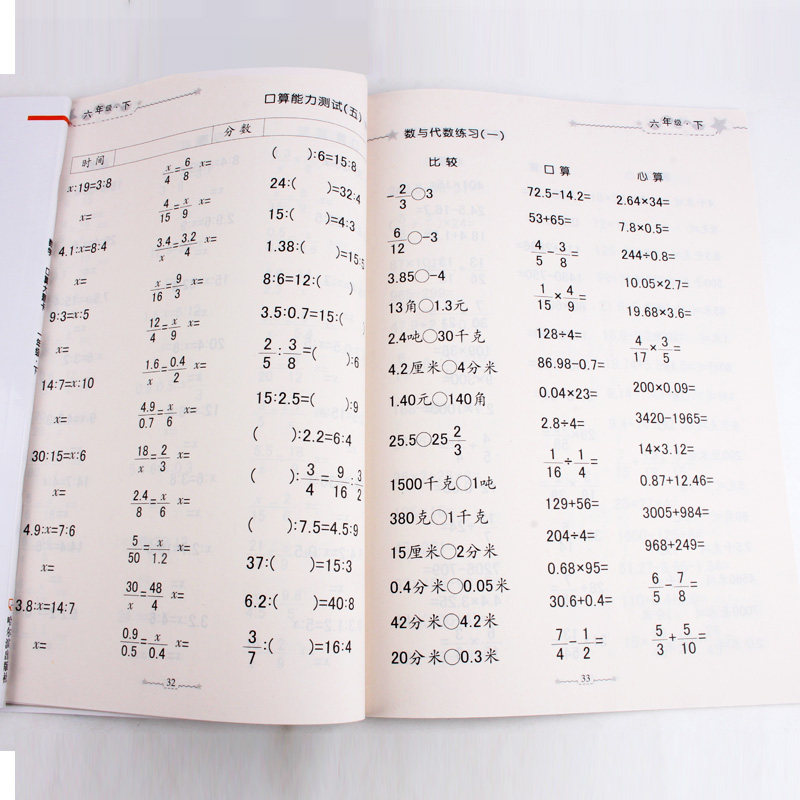 六年级·下
口算能力测试(五)
时间 分数
x:19=3:8
x=
4.1:x=8:4
x=
9:3=x:5
x=
14:7=x:10
x=
30:15=x:6
x=
4.9:x=7:6
x=
3.8:x=14:7
x=
x/4=6/8 x=
4/15=x/9 x=
3.4/x=3.2/4 x=
x/16=9/3 x=
12/4=x/9 x=
1.6/x=0.4/2 x=
4.9/0.7=x/6 x=
18/x=2/3 x=
2.4/8=x/6 x=
5/50=x/1.2 x=
30/x=48/4 x=
0.9/0.5=x/0.4 x=
( ):6=15:8
24:( )=32:4
15:( )=4:3
1.38:( )=15:
8:6=12:( )
3.5:0.7=15:(
2/5:3/8=( ):6
15:2.5=( ):9
( ):2.2=6:4
( ):3/4=9/16:3/2
( ):7.5=4.5:9
37:( )=15:3
6.2:( )=40:8
3/7:( )=16:4
32
六年级·下
数与代数练习(一)
比较
-2/3○3
6/12○-3
3.85○-4
13角○1.3元
2.4吨○30千克
4.2厘米○4分米
1.40元○140角
25.5○25 2/3
1500千克○1吨
380克○1千克
15厘米○2分米
0.4分米○0.05米
42分米○4.2米
20分米○0.3米
口算
72.5-14.2=
53+65=
4/5-3/8=
1/15×4/9=
128÷4=
86.98-0.7=
0.04×23=
2.8÷4=
1/16÷1/4=
129+56=
204÷4=
0.68×95=
30.6+0.4=
7/4-1/2=
心算
2.64×34=
7.8×0.5=
244÷0.8=
10.05×2.7=
19.68×3.6=
4/17×3/5=
200×0.09=
3420-1965=
14×3.12=
0.87+12.46=
3005+984=
968+249=
6/5-7/8=
5/3+5/10=
33
哈尔滨出版社